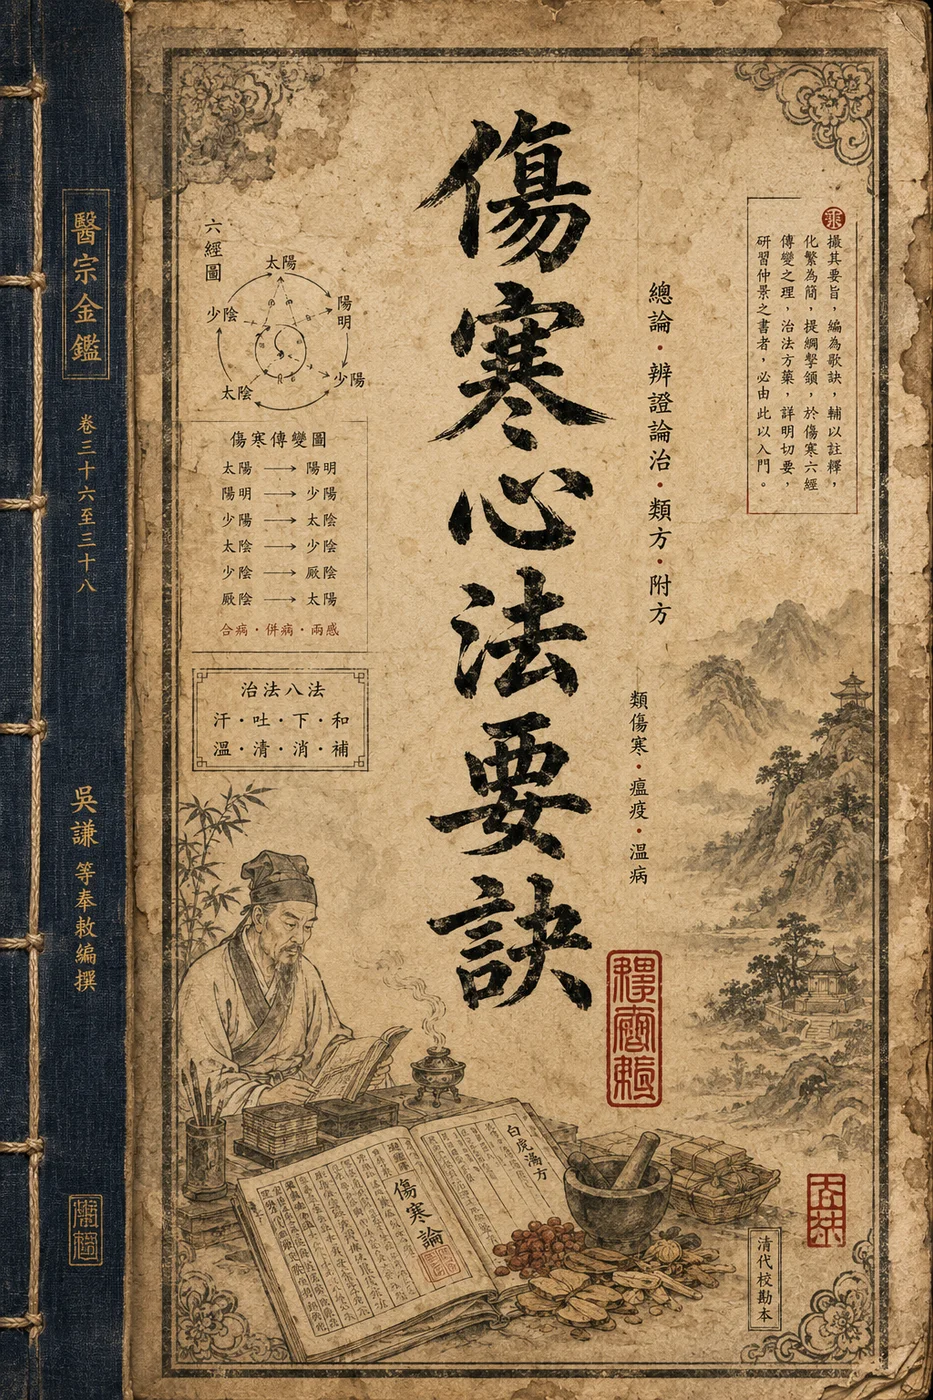 傷寒心法要訣
總論・辨證論治・類方・附方
類傷寒・瘟疫・溫病
撮其要旨，編為歌訣，輔以註釋，
化繁為簡，提綱挈領，於傷寒六經
傳變之理，治法方藥，詳明切要，
研習仲景之書者，必由此以入門。
六經圖
太陽
陽明
少陽
太陰
少陰
傷寒傳變圖
太陽 → 陽明
陽明 → 少陽
少陽 → 太陰
太陰 → 少陰
少陰 → 厥陰
厥陰 → 太陽
合病・併病・兩感
治法八法
汗・吐・下・和
溫・清・消・補
醫宗金鑑
卷三十六至三十八
吳謙等奉敕編撰
傷寒論
白虎湯方
清代校勘本